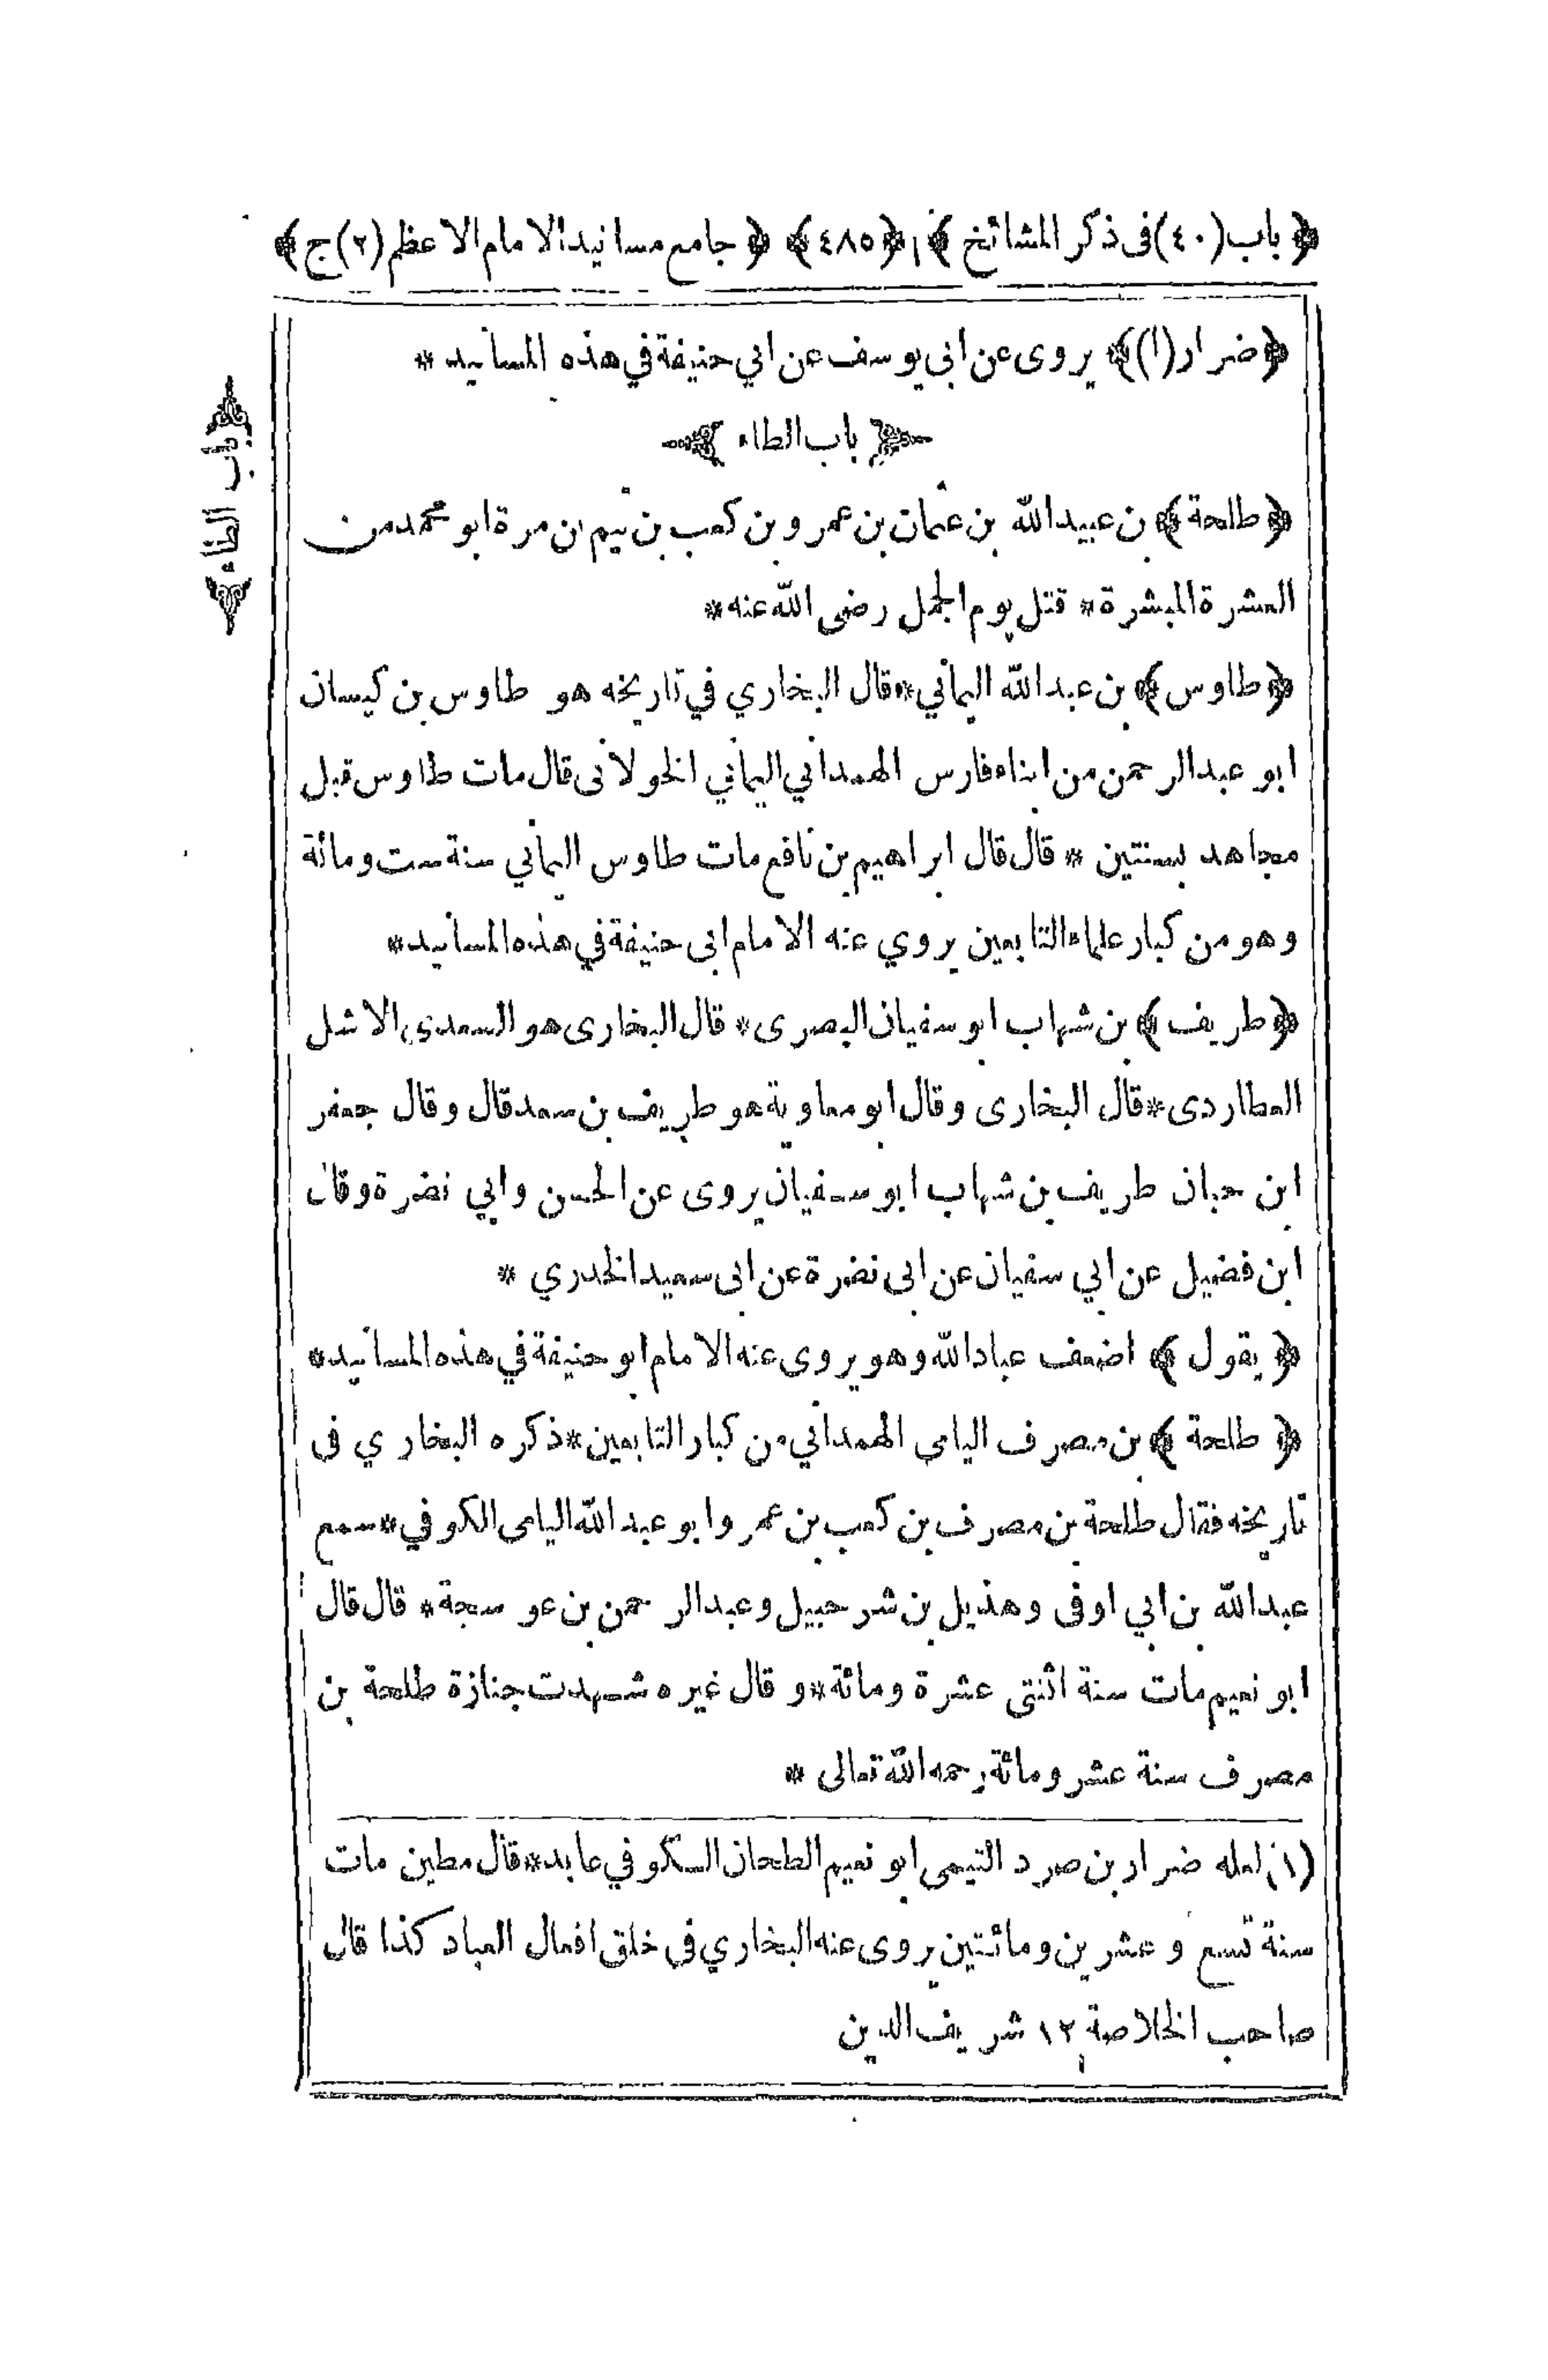 ﴿ باب (٤٠) فى ذكر المشائخ ﴾ ﴿٤٨٥﴾ ﴿ جامع مسانيد الامام الاعظم (٢) ج ﴾
﴿ ضرار (١) ﴾ يروى عن ابى يوسف عن ابي حنيفة في هذه المسانيد *
باب الطاء
﴿ باب الطاء ﴾
﴿ طلحة ﴾ بن عبيد الله بن عثمان بن عمرو بن كعب بن تيم بن مرة ابو محمد من
العشرة المبشرة * قتل يوم الجمل رضى الله عنه *
﴿ طاوس ﴾ بن عبد الله اليماني * قال البخاري في تاريخه هو طاوس بن كيسان
ابو عبد الرحمن من ابناء فارس الهمداني اليماني الخولانى قال مات طاوس قبل
مجاهد بسنتين * قال قال ابراهيم بن نافع مات طاوس اليماني سنة ست ومائة
وهو من كبار علماء التابعين يروي عنه الامام ابى حنيفة في هذه المسانيد *
﴿ طريف ﴾ بن شهاب ابو سفيان البصرى * قال البخارى هو السعدي الاشل
العطاردى * قال البخارى وقال ابو معاوية هو طريف بن سعد قال وقال جعفر
ابن حبان طريف بن شهاب ابو سفيان يروى عن الحسن وابي نضرة وقال
ابن فضيل عن ابي سفيان عن ابى نضرة عن ابى سعيد الخدري *
﴿ يقول ﴾ اضعف عباد الله وهو يروى عنه الامام ابو حنيفة في هذه المسانيد *
﴿ طلحة ﴾ بن مصرف اليامى الهمداني من كبار التابعين * ذكره البخاري فى
تاريخه فقال طلحة بن مصرف بن كعب بن عمرو ابو عبد الله اليامى الكوفي * سمع
عبد الله بن ابي اوفى وهذيل بن شرحبيل وعبد الرحمن بن عوسجة * قال قال
ابو نعيم مات سنة اثنتى عشرة ومائة * وقال غيره شهدت جنازة طلحة بن
مصرف سنة عشر ومائة رحمه الله تعالى *
(١) لعله ضرار بن صرد التيمى ابو نعيم الطحان الكوفي عابد * قال مطين مات
سنة تسع وعشرين ومائتين يروى عنه البخاري فى خلق افعال العباد كذا قال
صاحب الخلاصة ١٢ شريف الدين